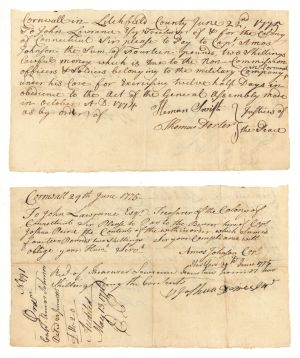 Cornwall in Litchfield County June 2nd 1775
To John Lawrance Esqr Treasurer of & for the Colony
of Connecticut Sir please to Pay to Capt. Amos
Johnson the Sum of Fourteen Pounds, two Shillings
Lawful money which is due to the Non-Commission
officers & Soldiers belonging to the military Company
under his Care for Exercise twelve half Days in
obedience to the Act of the General Assembly made
in October A.D. 1774
as by order of
Heman Swift
Thomas Porter
Justices of
the Peace
Cornwall 29th June 1775
To John Lawrance Esqr Treasurer of the Colony of
Connecticut Sir Please to Pay to the Bearer Capt
Joshua Pierce the Contents of the within order which Sum is
Fourteen Pounds two Shillings Sir your Compliance will
oblige your Humble Servt
Amos Johnson Capt
29th June 1775
Recd of Treasurer Lawrance fourteen pounds two
Shillings being the Contents
Joshua Pierce